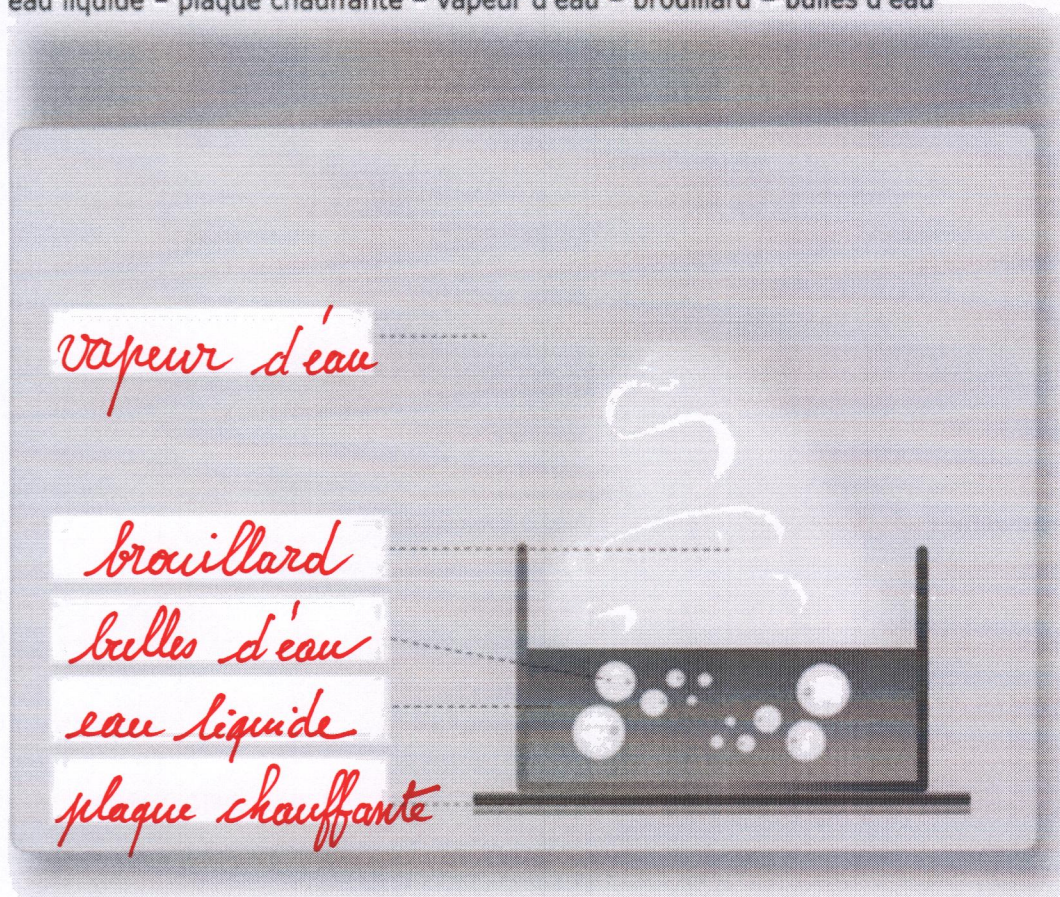 eau liquide – plaque chauffante – vapeur d'eau – brouillard – bulles d'eau
vapeur d'eau
brouillard
bulles d'eau
eau liquide
plaque chauffante